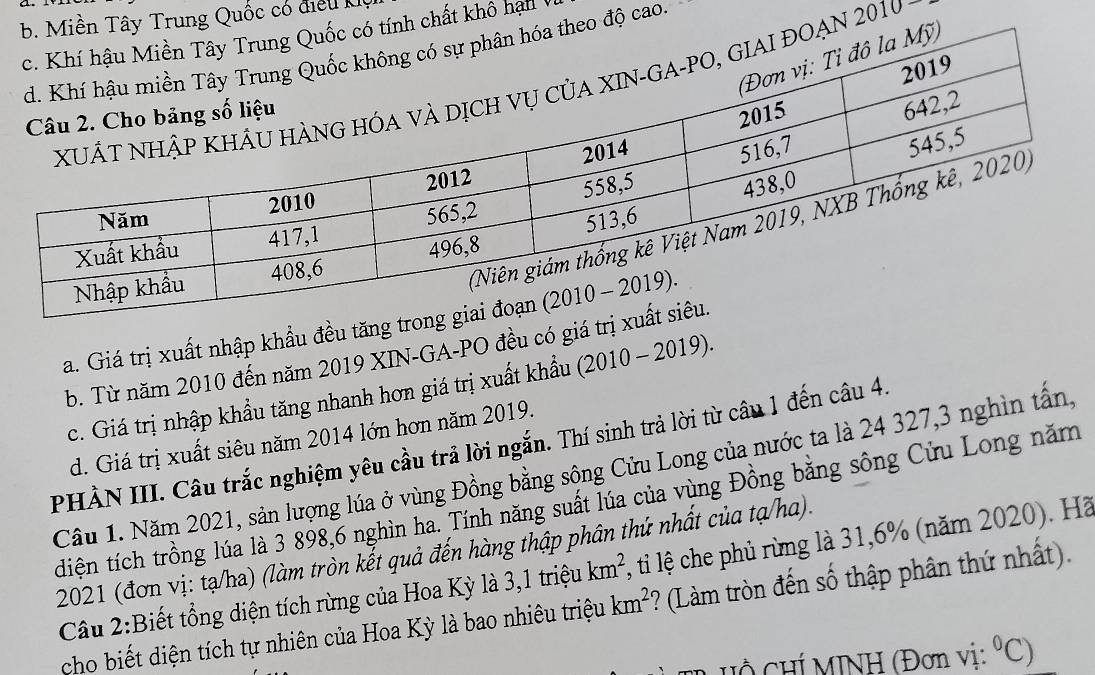 b. Miền Tây Trung Quốc có điều
c. Khí hậu Miền Tây Trung Quốc có tính chất khô hạn
d. Khí hậu miền Tây Trung Quốc không có sự phân hóa theo độ cao.
Câu 2. Cho bảng số liệu
XUẤT NHẬP KHẨU HÀNG HÓA VÀ DỊCH VỤ CỦA XIN-GA-PO, GIAI ĐOẠN 2010 –
(Đơn vị: Tỉ đô la Mỹ)
Năm 2010 2012 2014 2015 2019
Xuất khẩu 417,1 565,2 558,5 516,7 642,2
Nhập khẩu 408,6 496,8 513,6 438,0 545,5
(Niên giám thống kê Việt Nam 2019, NXB Thống kê, 2020)
a. Giá trị xuất nhập khẩu đều tăng trong giai đoạn (2010 – 2019).
b. Từ năm 2010 đến năm 2019 XIN-GA-PO đều có giá trị xuất siêu.
c. Giá trị nhập khẩu tăng nhanh hơn giá trị xuất khẩu (2010 – 2019).
d. Giá trị xuất siêu năm 2014 lớn hơn năm 2019.
PHẦN III. Câu trắc nghiệm yêu cầu trả lời ngắn. Thí sinh trả lời từ câu 1 đến câu 4.
Câu 1. Năm 2021, sản lượng lúa ở vùng Đồng bằng sông Cửu Long của nước ta là 24 327,3 nghìn tấn,
diện tích trồng lúa là 3 898,6 nghìn ha. Tính năng suất lúa của vùng Đồng bằng sông Cửu Long năm
2021 (đơn vị: tạ/ha) (làm tròn kết quả đến hàng thập phân thứ nhất của tạ/ha).
Câu 2:Biết tổng diện tích rừng của Hoa Kỳ là 3,1 triệu km², tỉ lệ che phủ rừng là 31,6% (năm 2020). Hã
cho biết diện tích tự nhiên của Hoa Kỳ là bao nhiêu triệu km²? (Làm tròn đến số thập phân thứ nhất).
HỒ CHÍ MINH (Đơn vị: ⁰C)